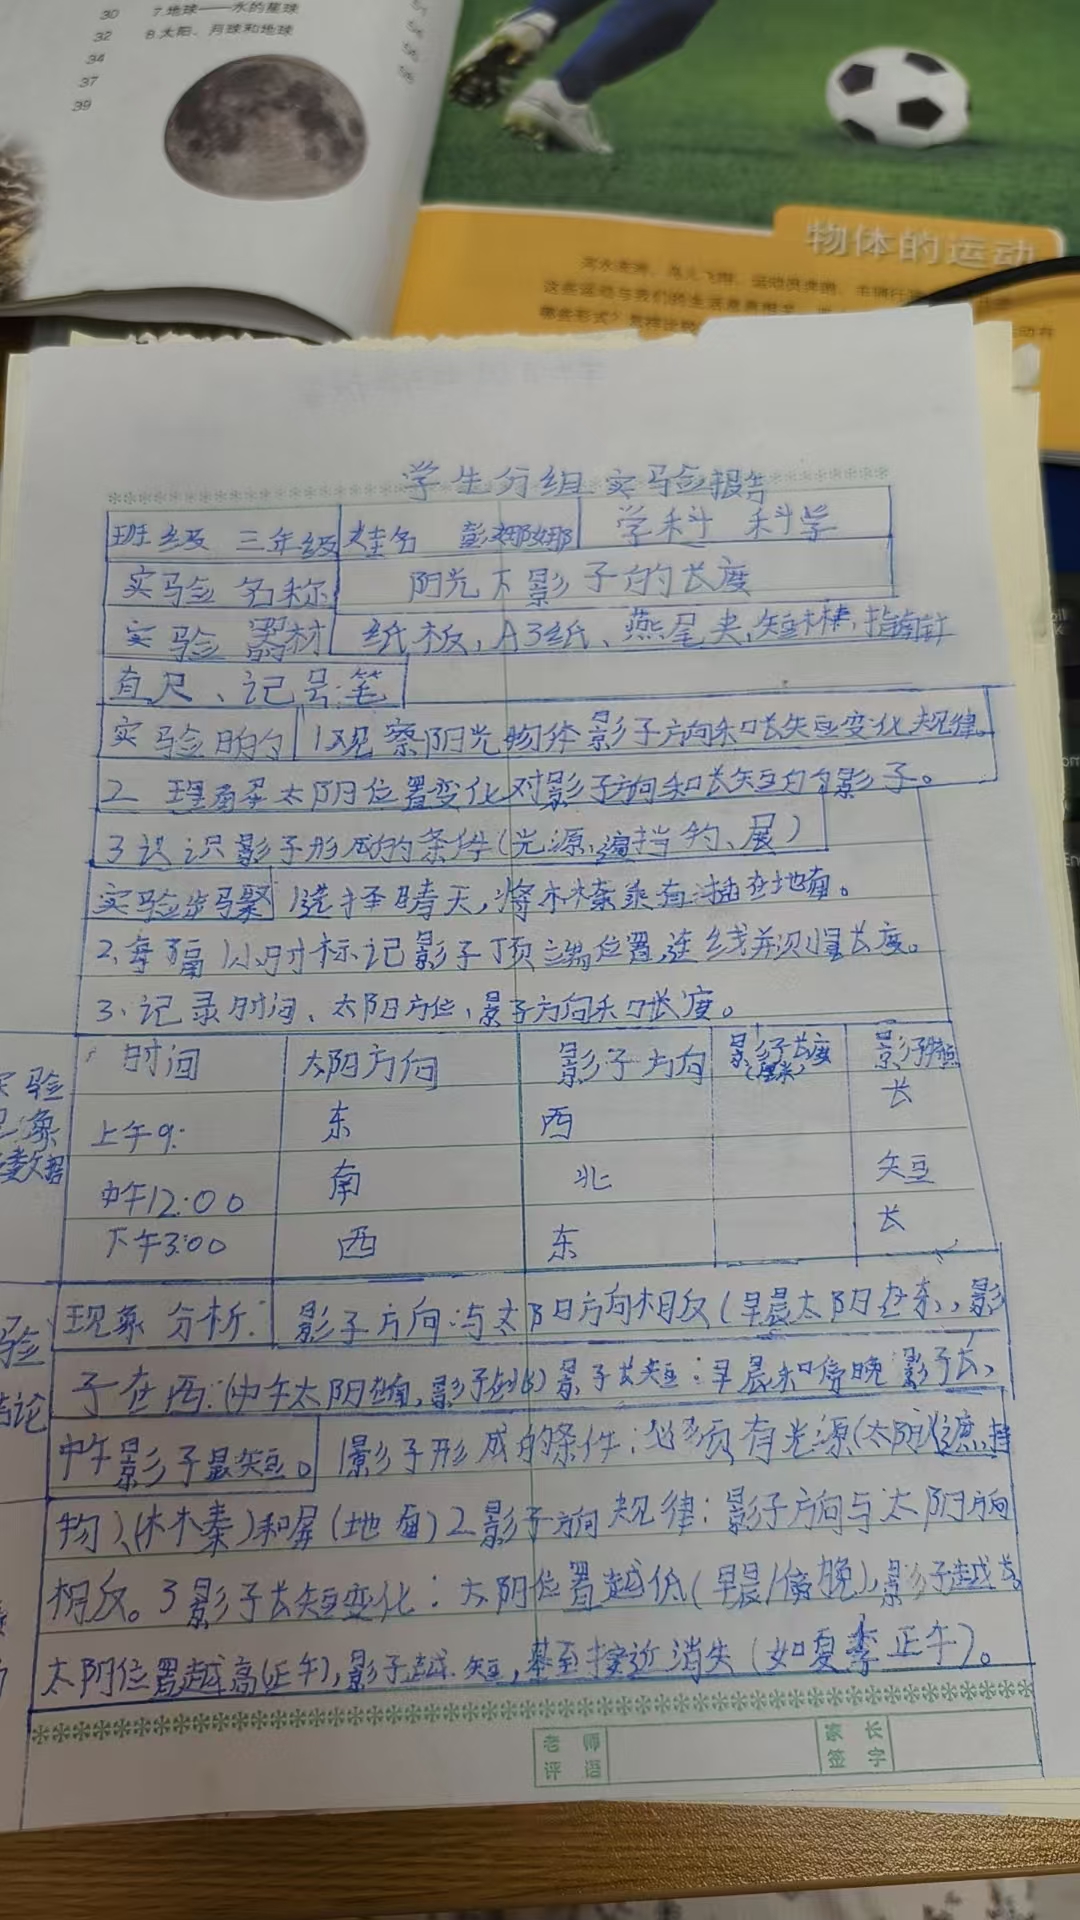 30 7.地球——水的星球
32 8.太阳、月球和地球
34
37
39
物体的运动
学生分组实验报告
班级 三年级 姓名 彭娜娜 学科 科学
实验名称 阳光下影子的长度
实验器材 纸板,A3纸、燕尾夹,短木棒,指南针
直尺、记号笔
实验目的 1观察阳光物体影子方向和长短变化规律。
2 理解太阳位置变化对影子方向和长短的影子。
3认识影子形成的条件(光源,遮挡物、屏)
实验步骤 1选择晴天,将木棒垂直插在地面。
2.每隔1小时标记影子顶端位置,连线并测量长度。
3.记录时间、太阳方位,影子方向和长度。
时间 太阳方向 影子方向 影子长度(厘米) 影子特点
实验
现象
上午9: 东 西 长
中午12:00 南 北 短
下午3:00 西 东 长
现象分析: 影子方向:与太阳方向相反(早晨太阳在东,影
子在西:(中午太阳在南,影子在北)影子长短:早晨和傍晚影子长,
结论
中午影子最短。 1影子形成的条件:必须有光源(太阳)(遮挡
物)、(木棒)和屏(地面)2影子方向规律:影子方向与太阳方向
相反。3影子长短变化:太阳位置越低(早晨/傍晚),影子越长。
太阳位置越高(正午),影子越短,甚至接近消失(如夏季正午)。
老师评语 家长签字